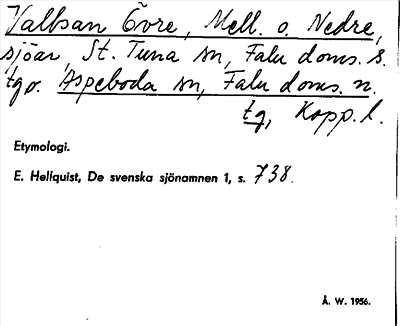 Valbsan Övre, Mell. o. Nedre,
sjöar, St. Tuna sn, Falu doms. s.
tg o. Aspeboda sn, Falu doms. n.
tg, Kopp. l.
Etymologi.
E. Hellquist, De svenska sjönamnen 1, s. 738.
Å. W. 1956.